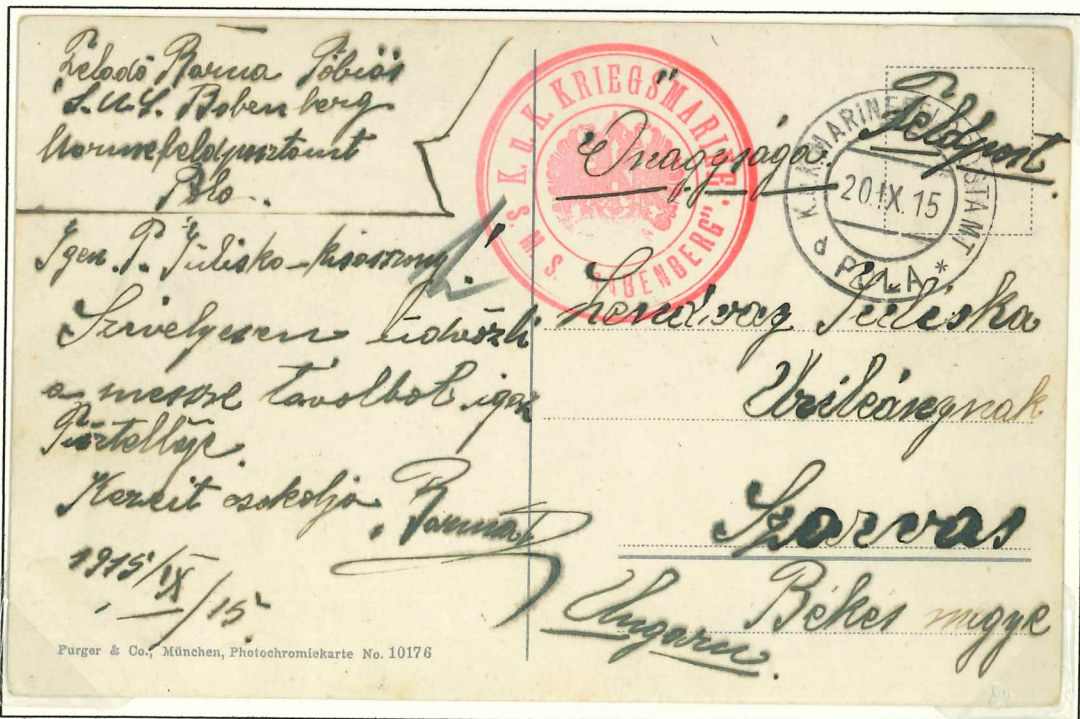 Feladó Barna Tóbiás
S.M.S. Babenberg
Marinefeldpostamt
Pola.
Igen. T. Juliska kisasszony!
Szivelyesen üdvözli
a messze távolbol igaz
Kezeit csokolja Barna T
1915/IX/15.
Purger & Co., München, Photochromiekarte No. 10176
K. U. K. KRIEGSMARINE
S. M. S. "BABENBERG"
K.U.K. MARINEFELDPOSTAMT
20.IX.15
d POLA *
Feldpost.
Őnagysága.
Juliska
Urileánynak
Szarvas
Békés megye
Ungarn.